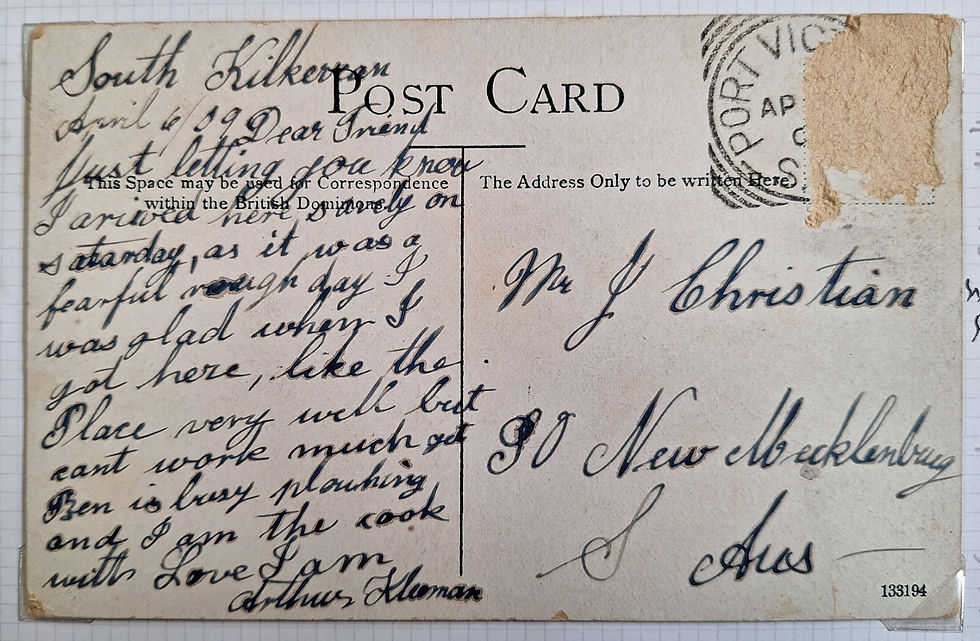 South Kilkerran
April 6/09 Dear Friend
Just letting you know
I arived here savely on
satarday, as it was a
fearful rough day I
was glad when I
got here, like the
Place very well but
cant work much yet
Ben is busy plouhing
and I am the cook
with Love I am
Arthur Kleeman
POST CARD
This Space may be used for Correspondence
within the British Dominions.
The Address Only to be written Here.
PORT VIC
AP
S
Mr J Christian
PO New Mecklenburg
S Aus
133194